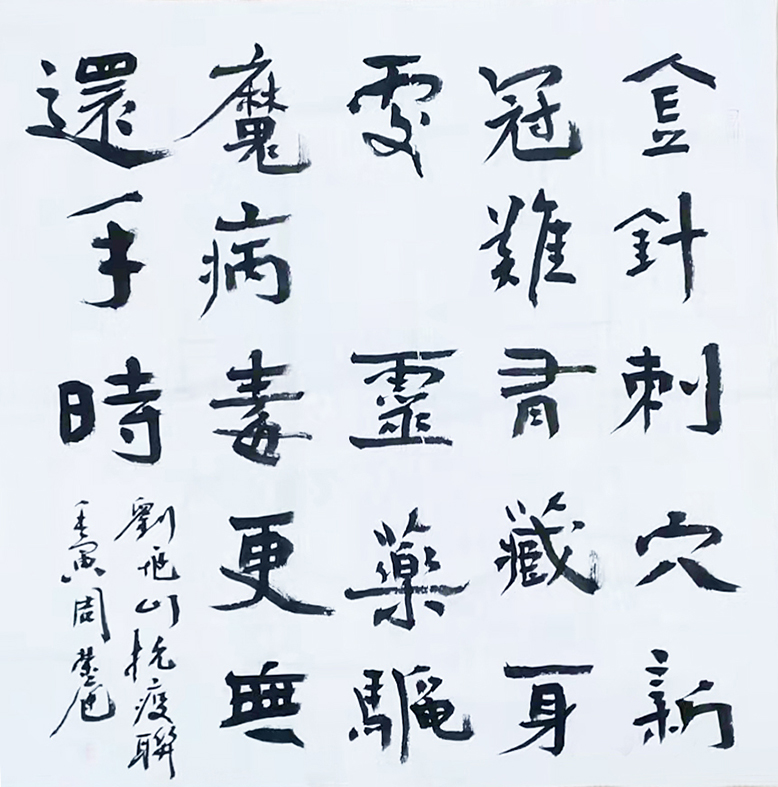 金針刺穴新
冠難有藏身
處 靈藥驅
魔病毒更無
還手時
劉旭山抗疫聯
壬寅周